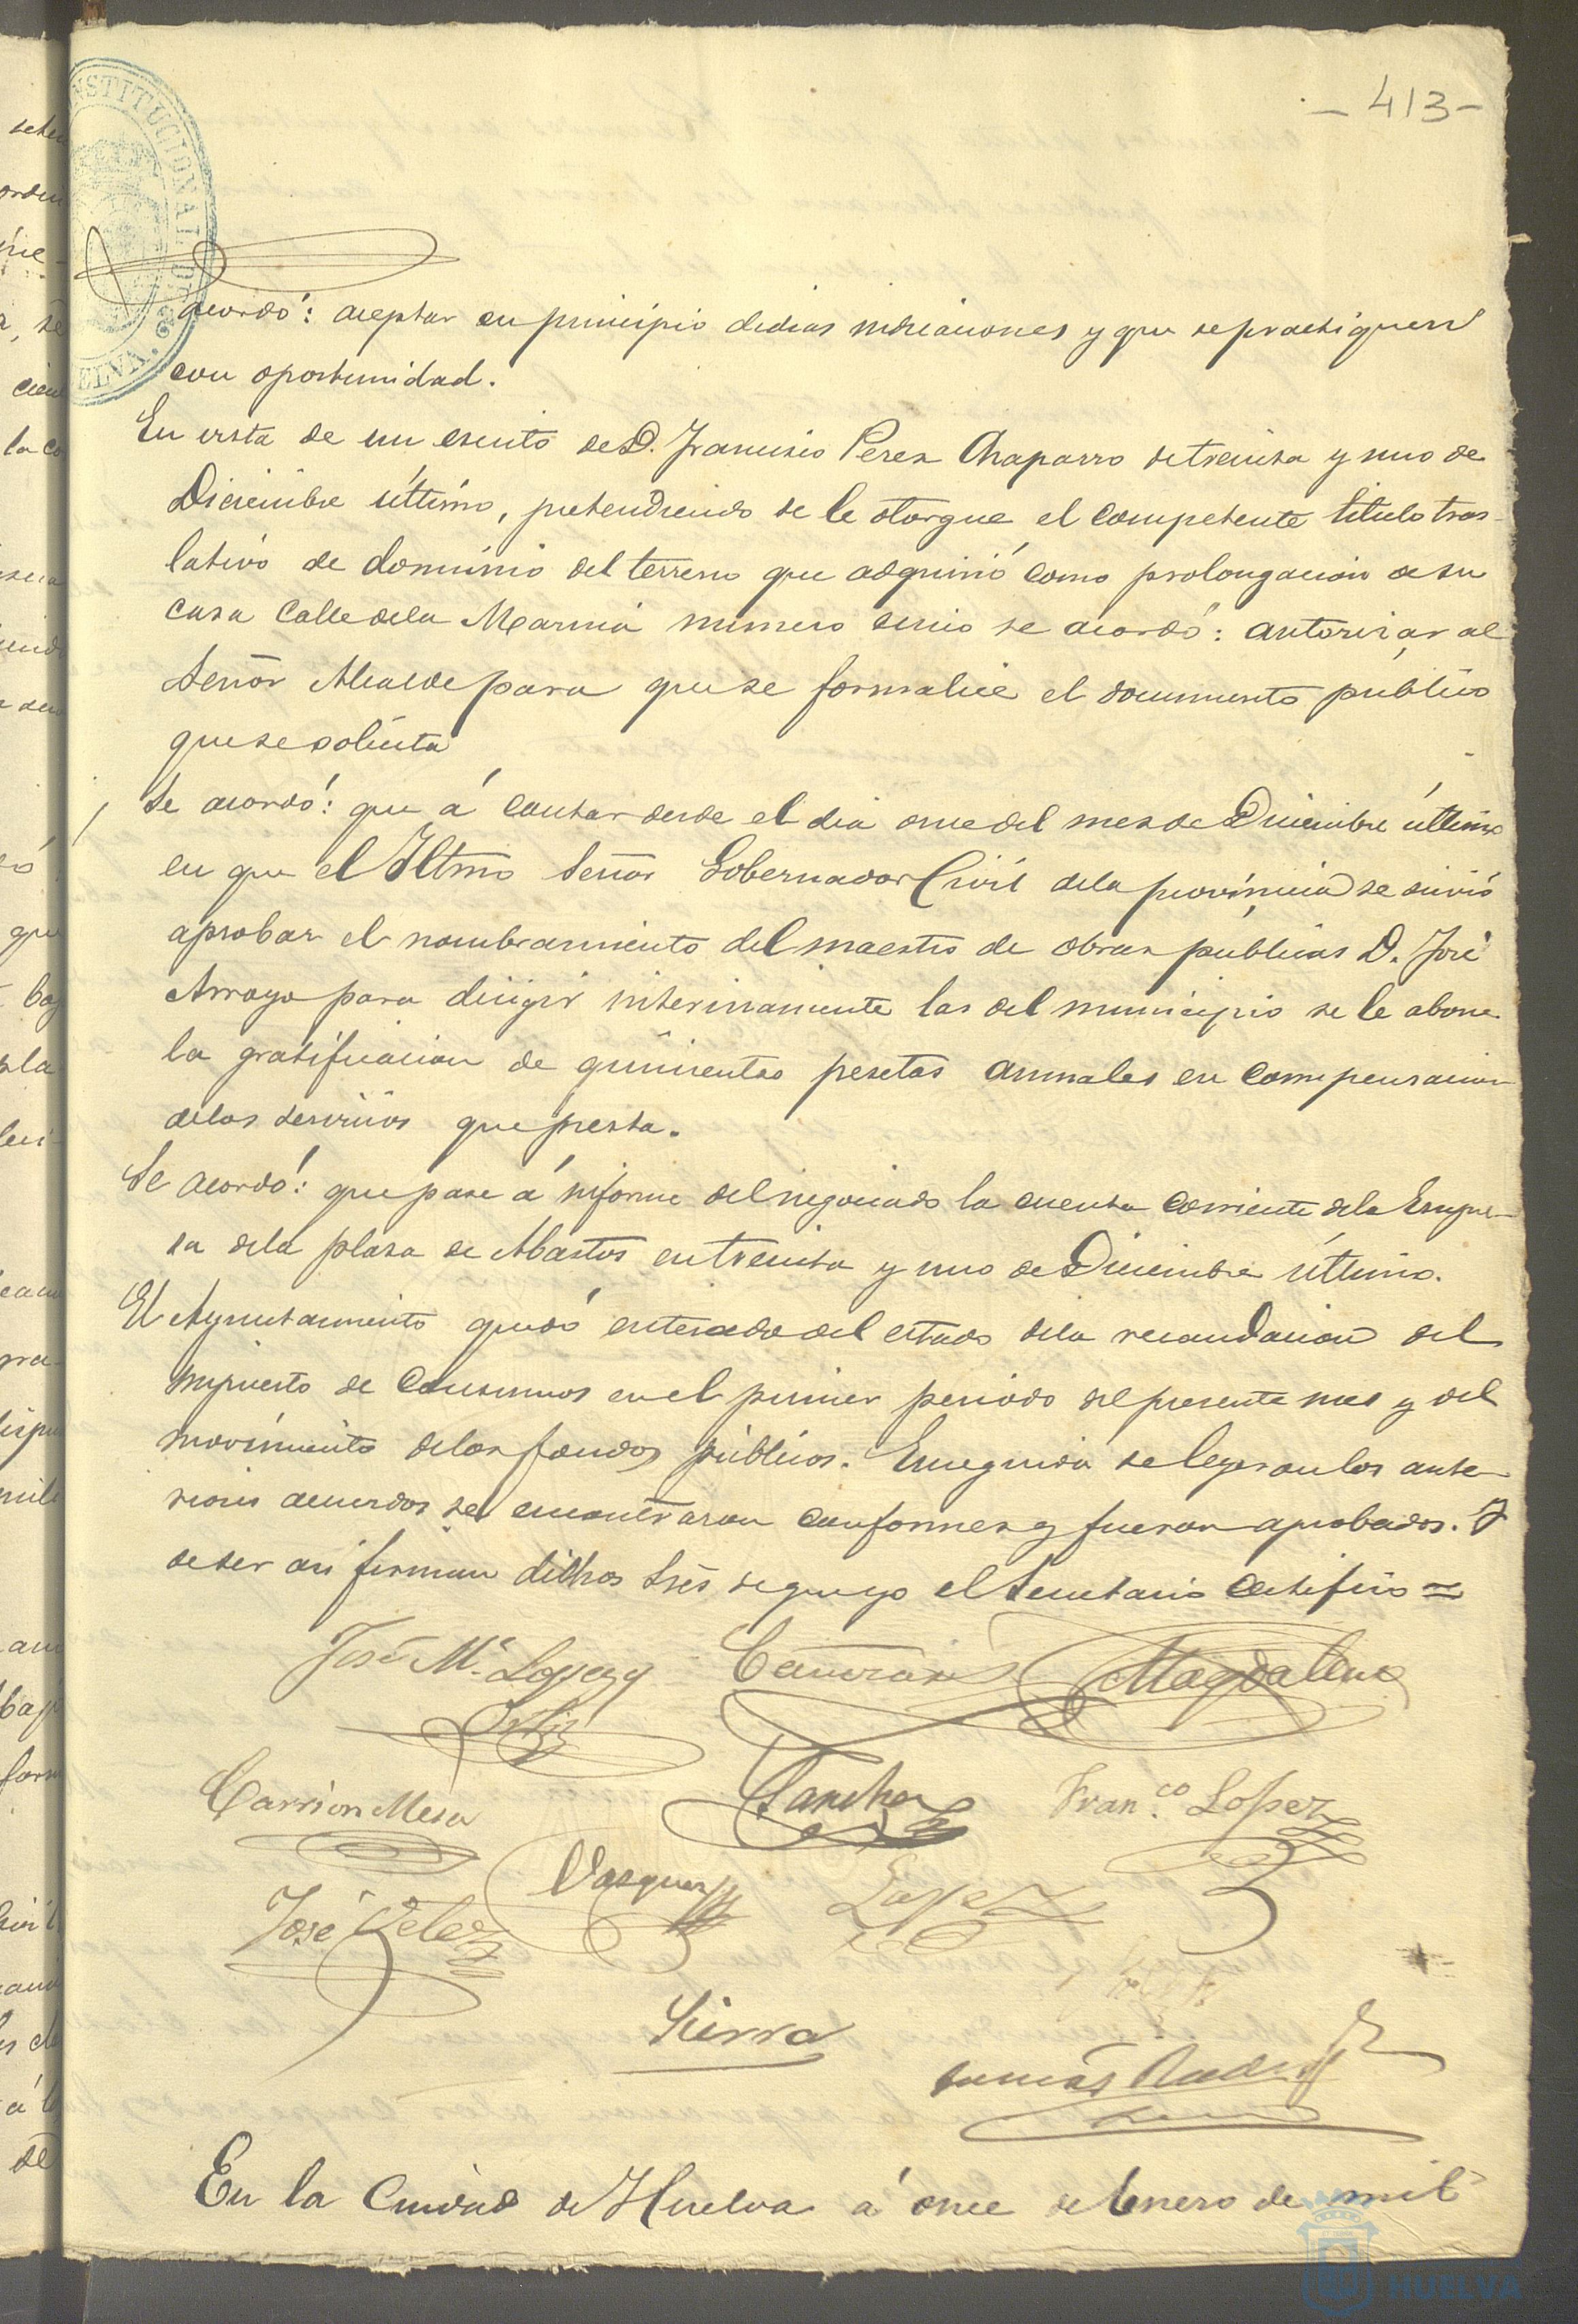 - 413 -
CONSTITUCIONAL DE
HUELVA.
acordó: aceptar en principio dichas indicaciones y que se practiquen
con oportunidad.
En vista de un escrito de D. Francisco Perez Chaparro de treinta y uno de
Diciembre último, pretendiendo se le otorgue el competente titulo tras-
lativo de dominio del terreno que adquirió como prolongacion de su
casa Calle de la Marina numero cinco se acordó: autorizar al
Señor Alcalde para que se formalice el documento publico
que se solicita
Se acordó: que á contar desde el dia once del mes de Diciembre último
en que el Iltmo Señor Gobernador Civil de la provincia se sirvió
aprobar el nombramiento del maestro de obras públicas D. José
Arroyo para dirigir interinamente las del municipio se le abone
la gratificacion de quinientas pesetas anuales en compensacion
de los servicios que presta.
Se acordó: que pase á informe del negociado la cuenta corriente de la Empre-
sa de la plaza de Abastos en treinta y uno de Diciembre último.
El Ayuntamiento quedó enterado del estado de la recaudacion del
impuesto de Consumos en el primer periodo del presente mes y del
movimiento de los fondos públicos. Enseguida se leyeron los ante-
riores acuerdos se encontraron conformes y fueron aprobados. Y
de ser asi firman dichos Sres de que yo el Secretario Certifico =
José Mª Lopez y Camerano Magdaleno
Ortiz
Carrion Mesa Sanchez Fran.co Lopez
José Velez Vazquez Lopez
Sierra
Tomás
En la Ciudad de Huelva á once de Enero de mil
HUELVA